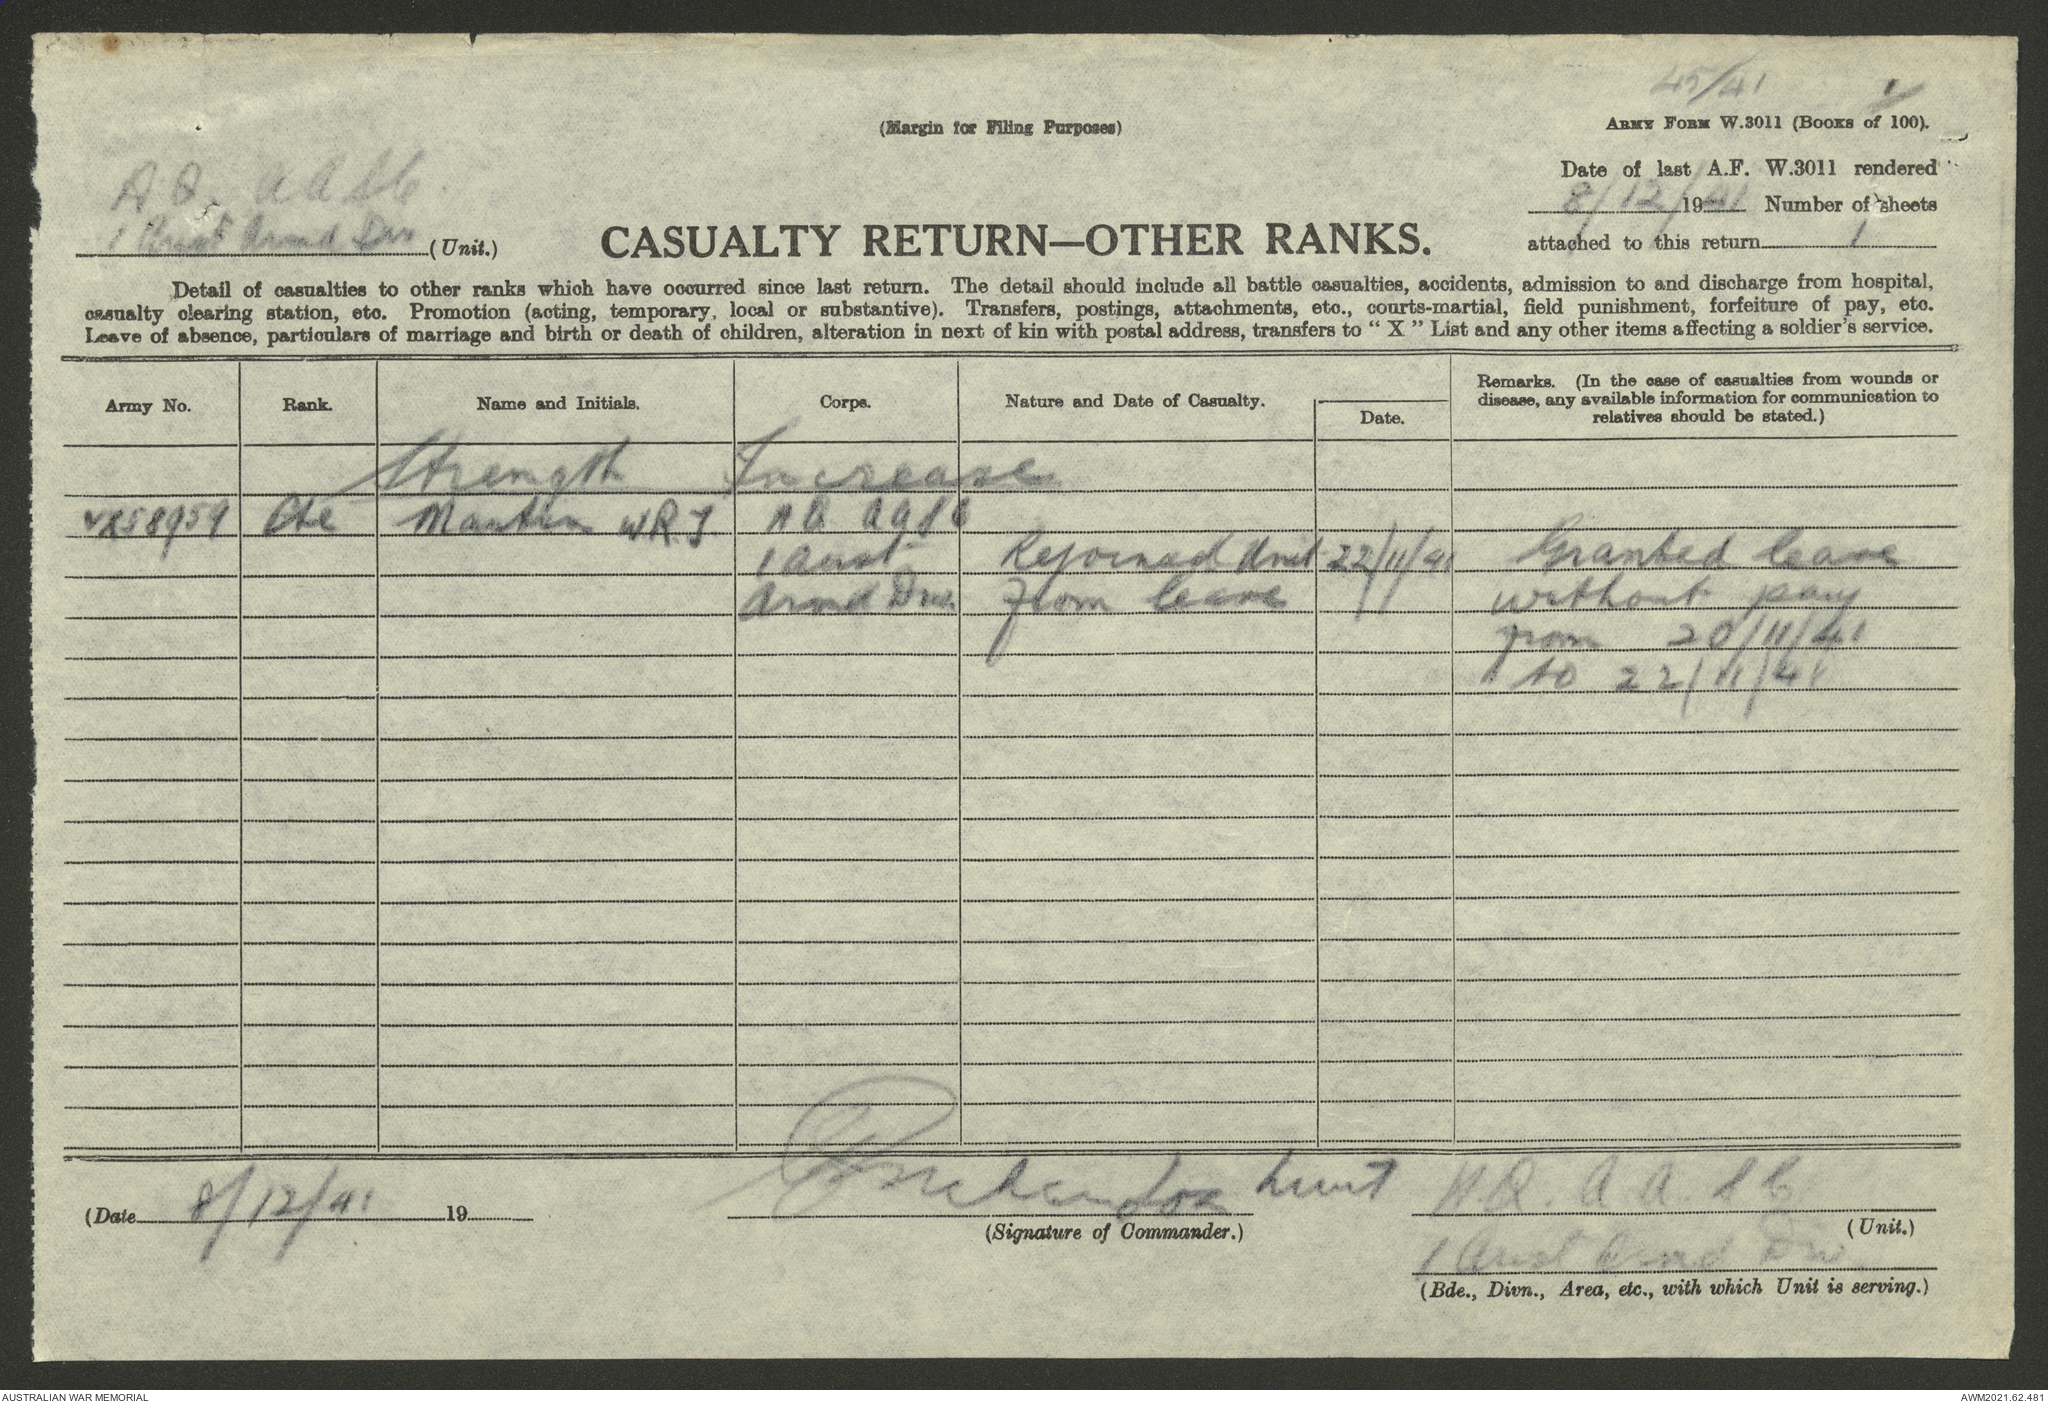 45/41
(Margin for Filing Purposes)
ARMY FORM W.3011 (BOOKS OF 100).
Date of last A.F. W.3011 rendered
8/12/1941 Number of sheets
attached to this return 1
H.Q. A A S C.
1 Aust Armd Div (Unit.)
CASUALTY RETURN—OTHER RANKS.
Detail of casualties to other ranks which have occurred since last return. The detail should include all battle casualties, accidents, admission to and discharge from hospital,
casualty clearing station, etc. Promotion (acting, temporary, local or substantive). Transfers, postings, attachments, etc., courts-martial, field punishment, forfeiture of pay, etc.
Leave of absence, particulars of marriage and birth or death of children, alteration in next of kin with postal address, transfers to " X " List and any other items affecting a soldier's service.
Army No. Rank. Name and Initials. Corps. Nature and Date of Casualty. Date. Remarks. (In the case of casualties from wounds or
disease, any available information for communication to
relatives should be stated.)
Strength Increase
58959 Pte Martin W.R.J HQ AASC
1 Aust Rejoined Unit 22/11/41 Granted leave
Armd Div from leave without pay
from 20/11/41
to 22/11/41
(Date 8/12/41 19 Lieut H.Q. A A. S C
(Signature of Commander.) (Unit.)
1 Aust Armd Div.
(Bde., Divn., Area, etc., with which Unit is serving.)
AUSTRALIAN WAR MEMORIAL AWM2021.62.481